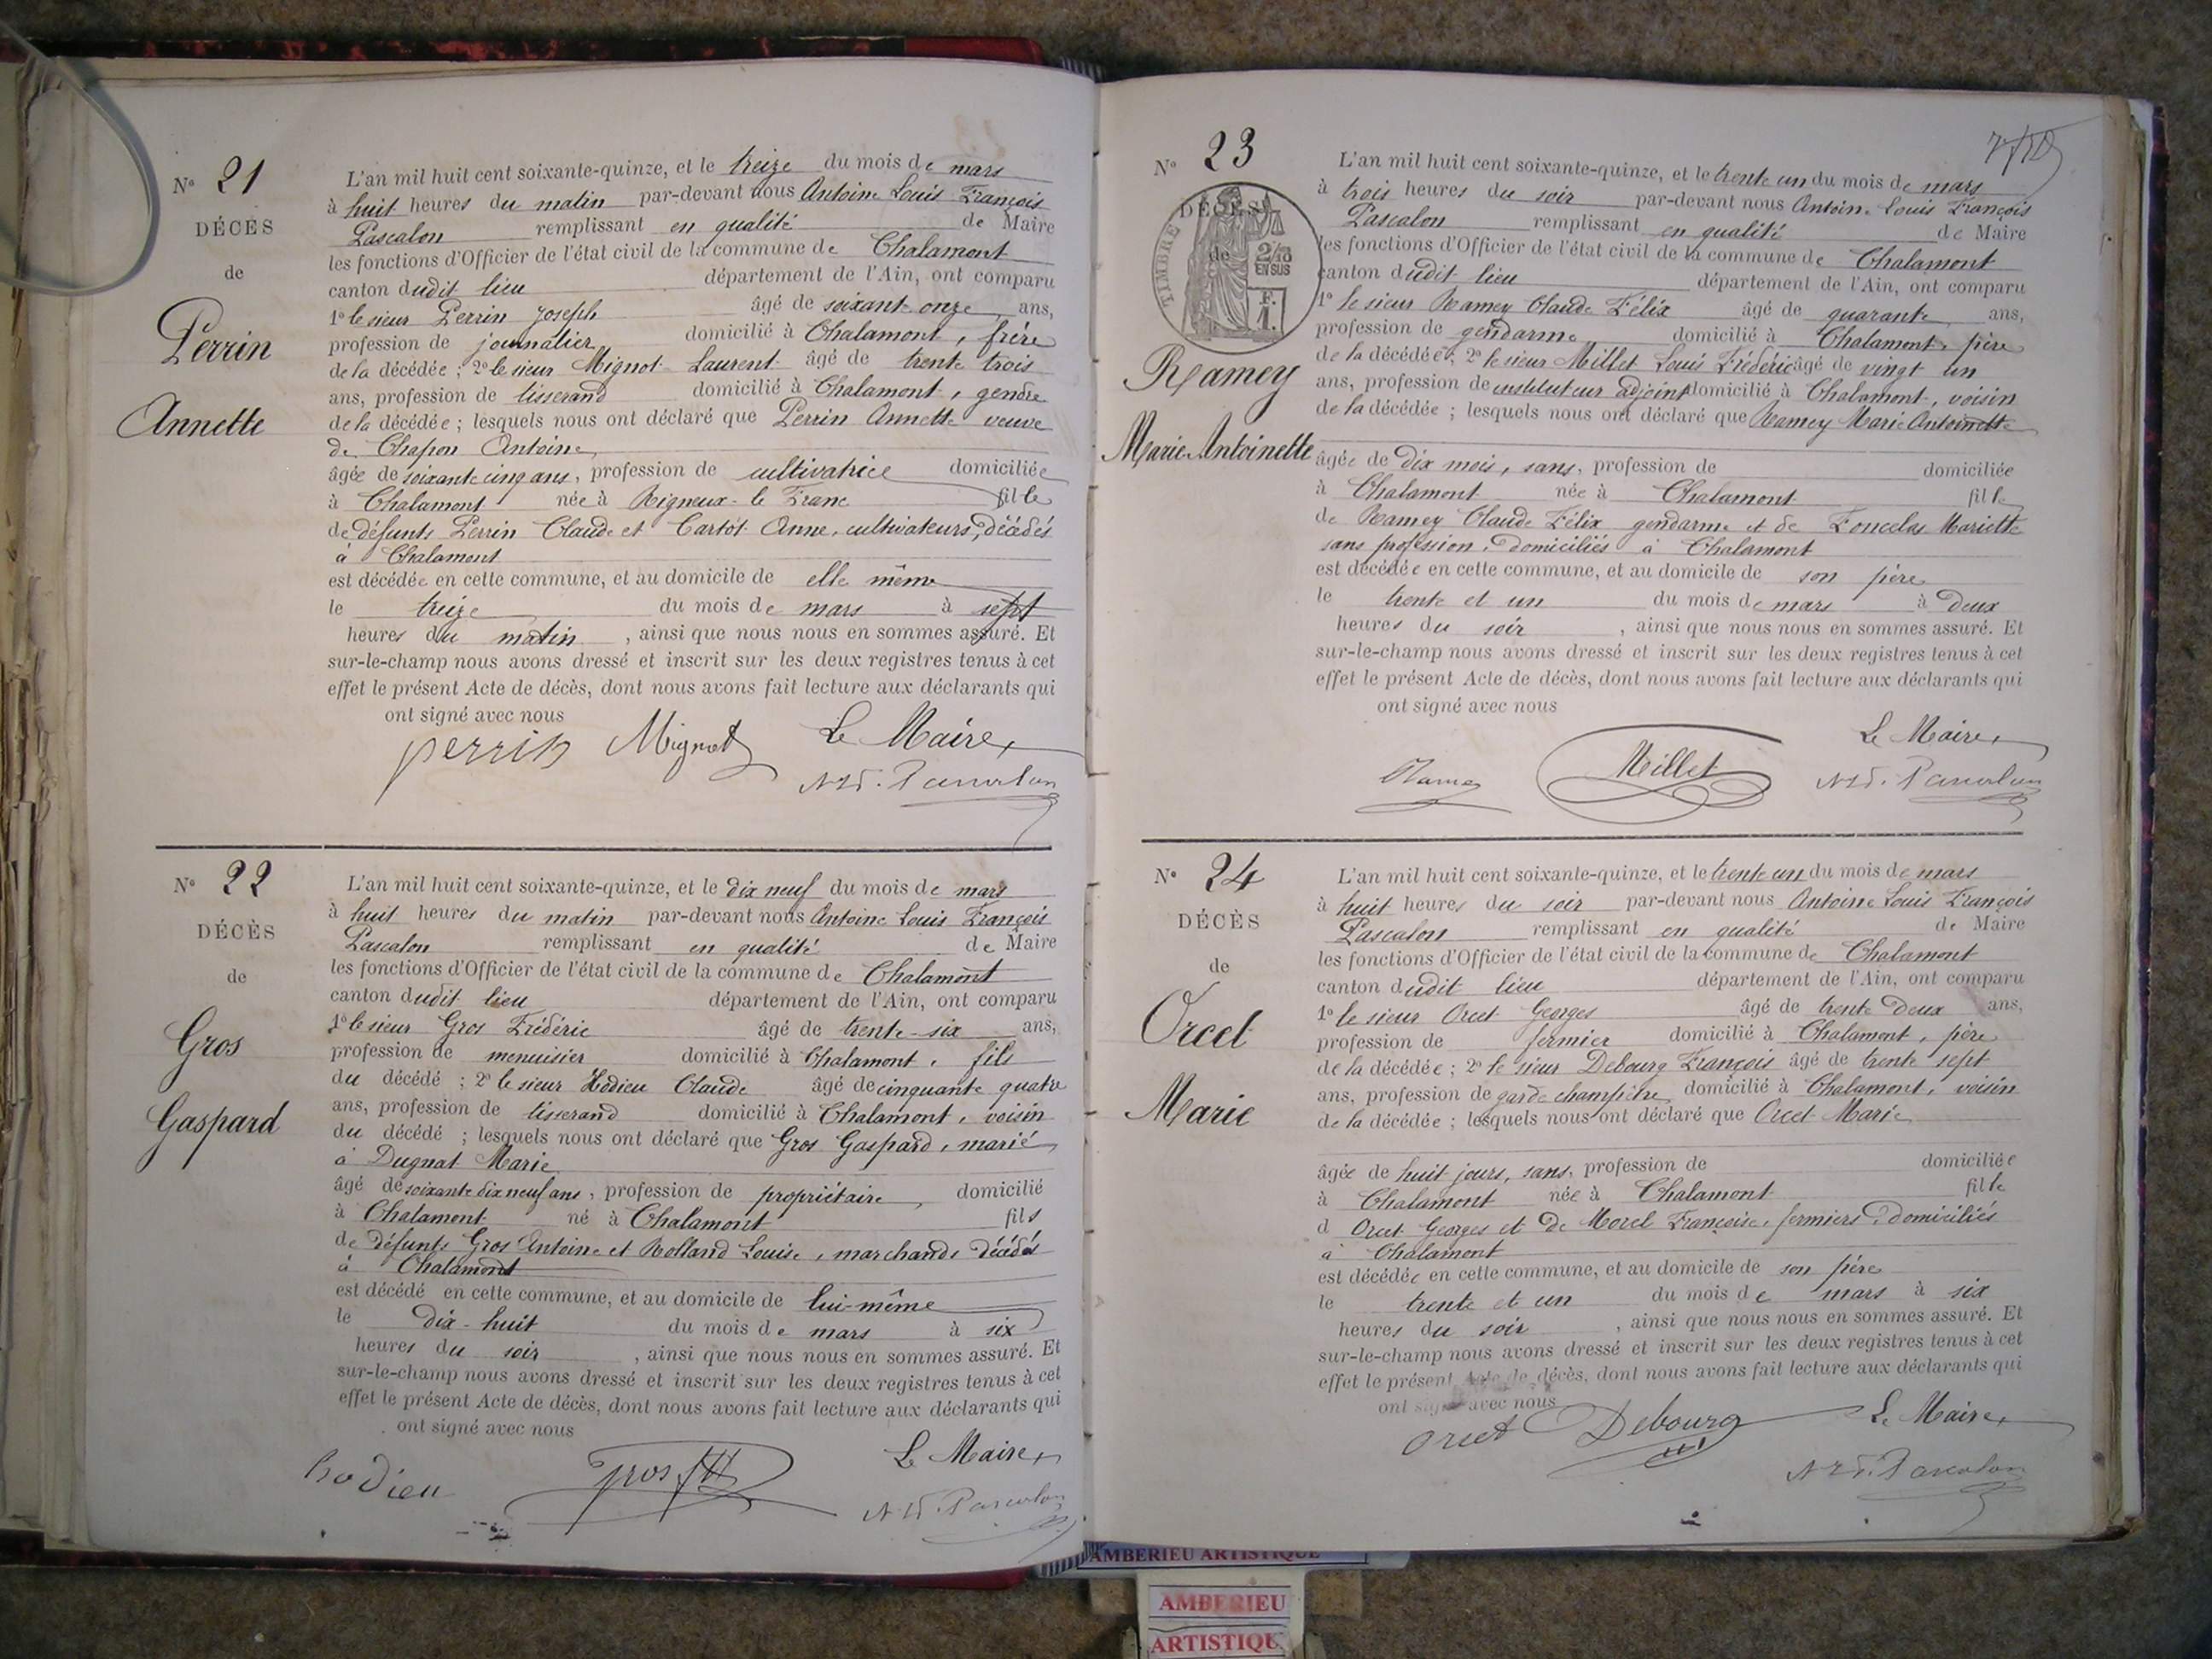 N° 21
DÉCÈS
de
Perrin
Annette
L'an mil huit cent soixante-quinze, et le treize du mois de mars
à huit heures du matin par-devant nous Antoine Louis François
Pascalon remplissant en qualité de Maire
les fonctions d'Officier de l'état civil de la commune de Chalamont
canton dudit lieu département de l'Ain, ont comparu
1° le sieur Perrin Joseph âgé de soixante onze ans,
profession de journalier domicilié à Chalamont, frère
de la décédée ; 2° le sieur Mignot Laurent âgé de trente trois
ans, profession de tisserand domicilié à Chalamont, gendre
de la décédée ; lesquels nous ont déclaré que Perrin Annette veuve
de Chapon Antoine
âgée de soixante cinq ans, profession de cultivatrice domiciliée
à Chalamont née à Rigneux-le Franc fille
de défunts Perrin Claude et Cartot Anne, cultivateurs, décédés
à Chalamont
est décédée en cette commune, et au domicile de elle même
le treize du mois de mars à sept
heures du matin, ainsi que nous nous en sommes assuré. Et
sur-le-champ nous avons dressé et inscrit sur les deux registres tenus à cet
effet le présent Acte de décès, dont nous avons fait lecture aux déclarants qui
ont signé avec nous
perrin Mignot Le Maire,
Pascalon
N° 22
DÉCÈS
de
Gros
Gaspard
L'an mil huit cent soixante-quinze, et le dix neuf du mois de mars
à huit heures du matin par-devant nous Antoine Louis François
Pascalon remplissant en qualité de Maire
les fonctions d'Officier de l'état civil de la commune de Chalamont
canton dudit lieu département de l'Ain, ont comparu
1° le sieur Gros Frédéric âgé de trente-six ans,
profession de menuisier domicilié à Chalamont, fils
du décédé ; 2° le sieur Hodieu Claude âgé de cinquante quatre
ans, profession de tisserand domicilié à Chalamont, voisin
du décédé ; lesquels nous ont déclaré que Gros Gaspard, marié
à Dugnat Marie
âgé de soixante dix neuf ans, profession de propriétaire, domicilié
à Chalamont né à Chalamont fils
de défunts Gros Antoine et Rolland Louise, marchands décédés
à Chalamont
est décédé en cette commune, et au domicile de lui-même
le dix-huit du mois de mars à six
heures du soir, ainsi que nous nous en sommes assuré. Et
sur-le-champ nous avons dressé et inscrit sur les deux registres tenus à cet
effet le présent Acte de décès, dont nous avons fait lecture aux déclarants qui
ont signé avec nous
hodieu gros Le Maire,
Pascalon
N° 23
TIMBRE
DÉCÈS
de
2/10
EN SUS
F.
1.
Ramey
Marie Antoinette
L'an mil huit cent soixante-quinze, et le trente un du mois de mars
à trois heures du soir par-devant nous Antoine Louis François
Pascalon remplissant en qualité de Maire
les fonctions d'Officier de l'état civil de la commune de Chalamont
canton dudit lieu département de l'Ain, ont comparu
1° le sieur Ramey Claude Félix âgé de quarante ans,
profession de gendarme domicilié à Chalamont, père
de la décédée ; 2° le sieur Millet Louis Frédéric âgé de vingt un
ans, profession de instituteur adjoint domicilié à Chalamont, voisin
de la décédée ; lesquels nous ont déclaré que Ramey Marie Antoinette
âgée de dix mois, sans, profession de domiciliée
à Chalamont née à Chalamont fille
de Ramey Claude Félix gendarme et de Foncelas Mariette
sans profession, domiciliés à Chalamont
est décédée en cette commune, et au domicile de son père
le trente et un du mois de mars à deux
heures du soir, ainsi que nous nous en sommes assuré. Et
sur-le-champ nous avons dressé et inscrit sur les deux registres tenus à cet
effet le présent Acte de décès, dont nous avons fait lecture aux déclarants qui
ont signé avec nous
Ramey Millet Le Maire,
Pascalon
N° 24
DÉCÈS
de
Orcet
Marie
L'an mil huit cent soixante-quinze, et le trente un du mois de mars
à huit heures du soir par-devant nous Antoine Louis François
Pascalon remplissant en qualité de Maire
les fonctions d'Officier de l'état civil de la commune de Chalamont
canton dudit lieu département de l'Ain, ont comparu
1° le sieur Orcet Georges âgé de trente deux ans,
profession de fermier domicilié à Chalamont, père
de la décédée ; 2° le sieur Debourg François âgé de trente sept
ans, profession de garde champêtre domicilié à Chalamont, voisin
de la décédée ; lesquels nous ont déclaré que Orcet Marie
âgée de huit jours, sans, profession de domiciliée
à Chalamont née à Chalamont fille
d Orcet Georges et de Morel Françoise, fermiers domiciliés
à Chalamont
est décédée en cette commune, et au domicile de son père
le trente et un du mois de mars à six
heures du soir, ainsi que nous nous en sommes assuré. Et
sur-le-champ nous avons dressé et inscrit sur les deux registres tenus à cet
effet le présent Acte de décès, dont nous avons fait lecture aux déclarants qui
ont signé avec nous
Orcet Debourg Le Maire,
Pascalon
AMBERIEU ARTISTIQUE
AMBERIEU
ARTISTIQU